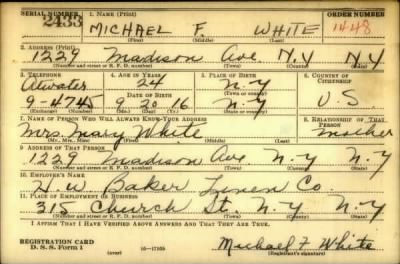 SERIAL NUMBER 1. NAME (Print) ORDER NUMBER
2433 MICHAEL F. WHITE 1448
(First) (Middle) (Last)
2. ADDRESS (Print)
1229 Madison Ave. N.Y N.Y
(Number and street or R. F. D. number) (Town) (County) (State)
3. TELEPHONE 4. AGE IN YEARS 5. PLACE OF BIRTH 6. COUNTRY OF CITIZENSHIP
Atwater 24 N.Y
DATE OF BIRTH (Town or county)
9-4745 9 20 16 N.Y U.S
(Exchange) (Number) (Mo.) (Day) (Yr.) (State or country)
7. NAME OF PERSON WHO WILL ALWAYS KNOW YOUR ADDRESS 8. RELATIONSHIP OF THAT PERSON
Mrs. Mary White mother
(Mr., Mrs., Miss) (First) (Middle) (Last)
9. ADDRESS OF THAT PERSON
1229 Madison Ave N.Y N.Y
(Number and street or R. F. D. number) (Town) (County) (State)
10. EMPLOYER'S NAME
H. W. Baker Linen Co.
11. PLACE OF EMPLOYMENT OR BUSINESS
315 Church St. N.Y N.Y
(Number and street or R. F. D. number) (Town) (County) (State)
I AFFIRM THAT I HAVE VERIFIED ABOVE ANSWERS AND THAT THEY ARE TRUE.
REGISTRATION CARD
D. S. S. Form 1 (over) Michael F White
(Registrant's signature)